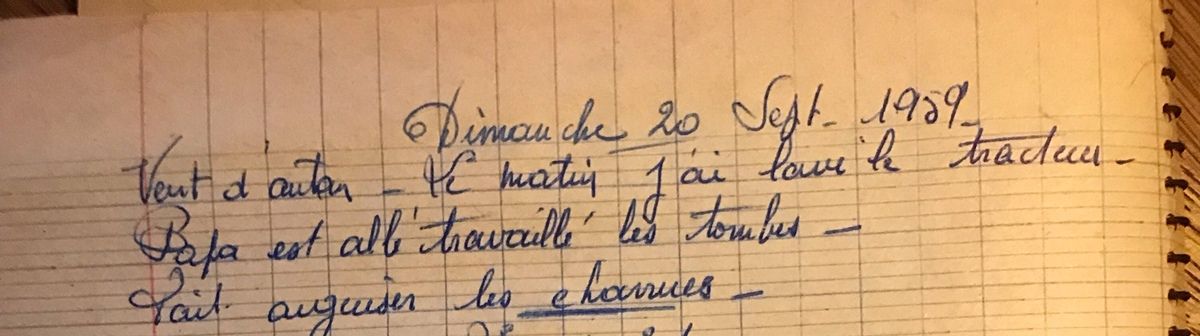 Dimanche 20 Sept. 1959
Vent d'autan - Le matin j'ai lavé le tracteur -
Papa est allé travaillé les tombes -
Fait aiguiser les charrues -